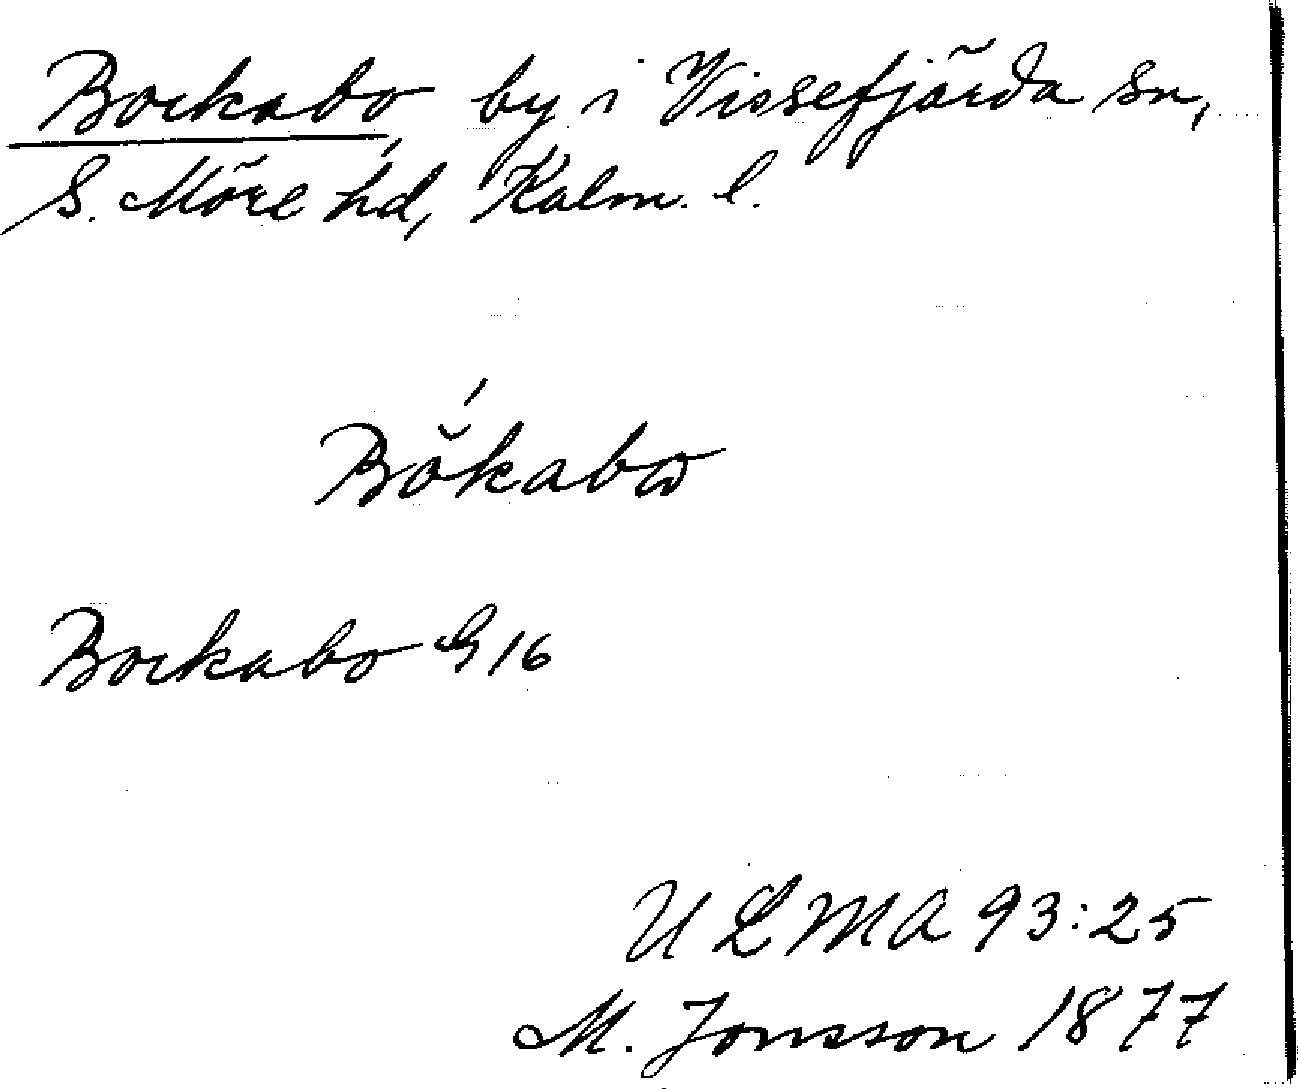 Bockabo by i Vissefjärda sn,
S. Möre hd, Kalm. l.
Bŏ́kabω
Bockabo G 16
ULMA 93:25
M. Jonsson 1877